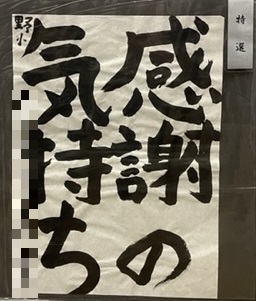 特選
感謝の
気持ち
野小